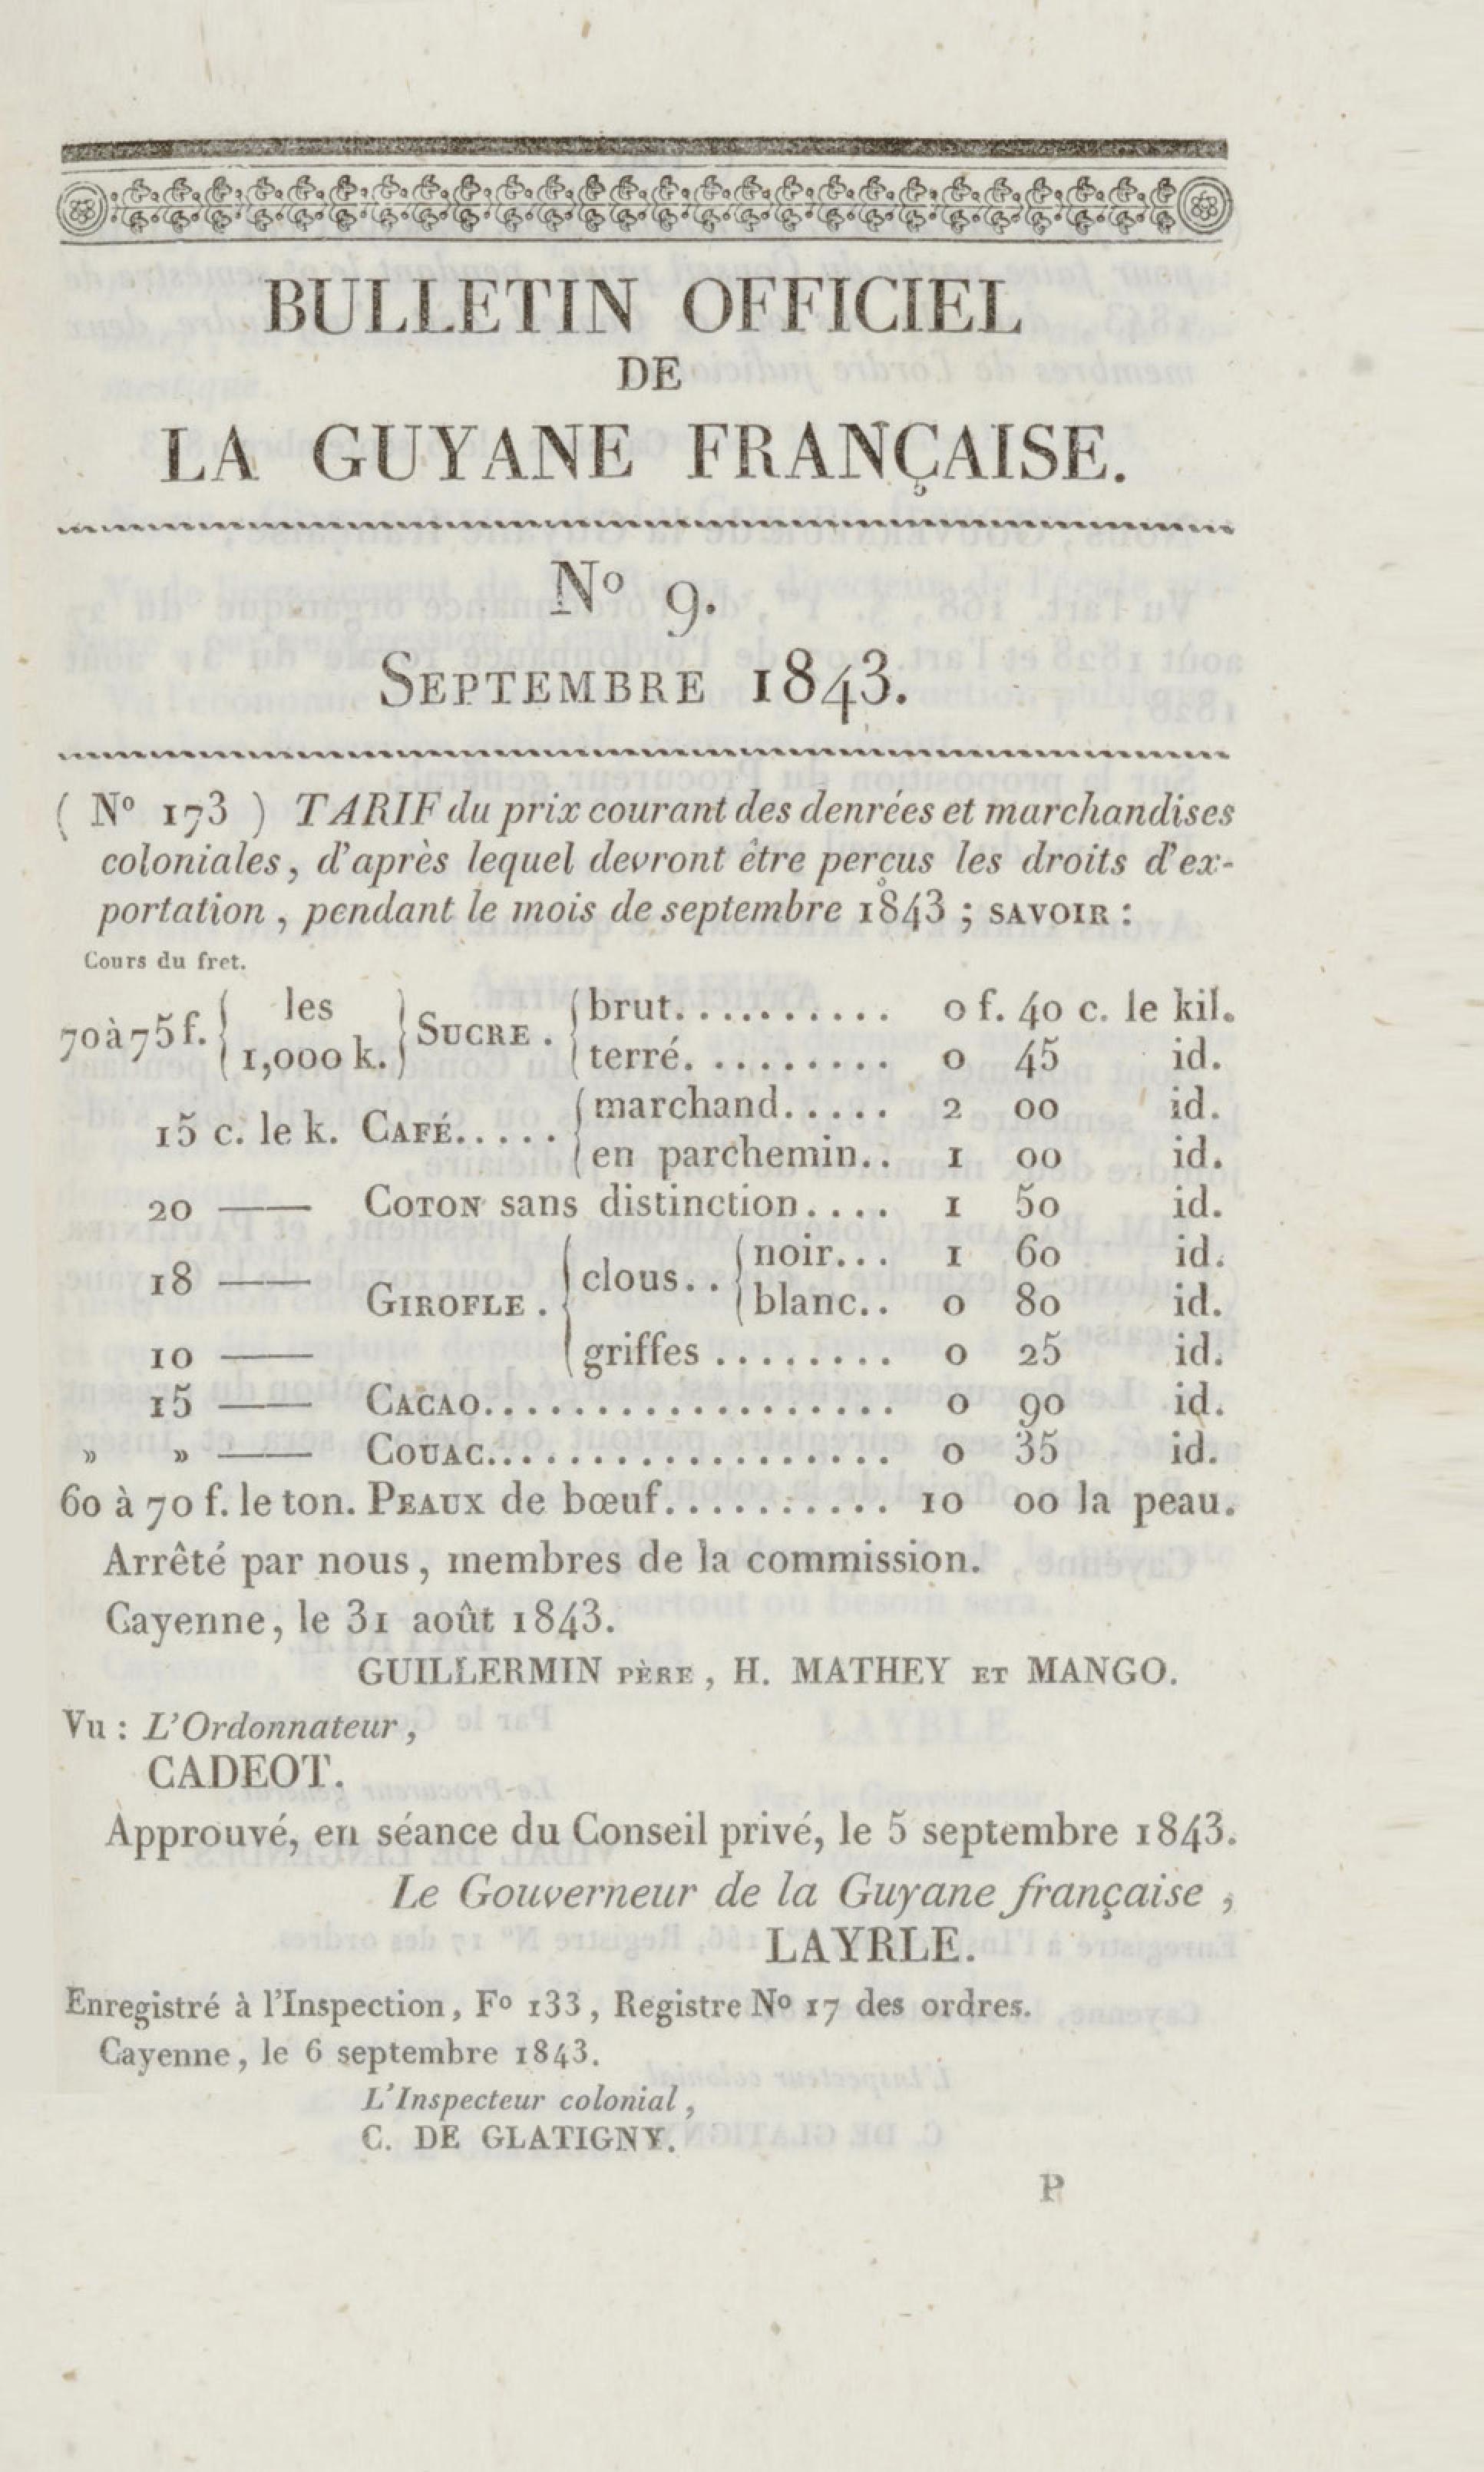 BULLETIN OFFICIEL
DE
LA GUYANE FRANÇAISE.
Nº 9.
SEPTEMBRE 1843.
( Nº 173 ) TARIF du prix courant des denrées et marchandises
coloniales, d'après lequel devront être perçus les droits d'ex-
portation, pendant le mois de septembre 1843 ; SAVOIR :
Cours du fret.
70 à 75 f. { les 1,000 k. } SUCRE . { brut.......... 0 f. 40 c. le kil.
terré. ........ 0 45 id.
15 c. le k. CAFÉ..... { marchand..... 2 00 id.
en parchemin.. 1 00 id.
20 —— COTON sans distinction.... 1 50 id.
18 —— GIROFLE . { clous.. { noir... 1 60 id.
blanc.. 0 80 id.
10 —— griffes ........ 0 25 id.
15 —— CACAO.................. 0 90 id.
» » —— COUAC.................. 0 35 id.
60 à 70 f. le ton. PEAUX de bœuf.......... 10 00 la peau.
Arrêté par nous, membres de la commission.
Cayenne, le 31 août 1843.
GUILLERMIN PÈRE, H. MATHEY ET MANGO.
Vu : L'Ordonnateur,
CADEOT.
Approuvé, en séance du Conseil privé, le 5 septembre 1843.
Le Gouverneur de la Guyane française,
LAYRLE.
Enregistré à l'Inspection, Fº 133, Registre Nº 17 des ordres.
Cayenne, le 6 septembre 1843.
L'Inspecteur colonial,
C. DE GLATIGNY.
P